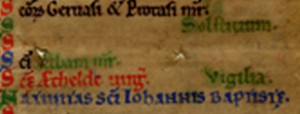 Geruasi & Protasi mr̄.
Solsticium.
Albani mr̄.
Sc̄e Etheldr̄ uirḡ. Vigilia.
Natiuitas Sc̄i Iohannis Baptistę.